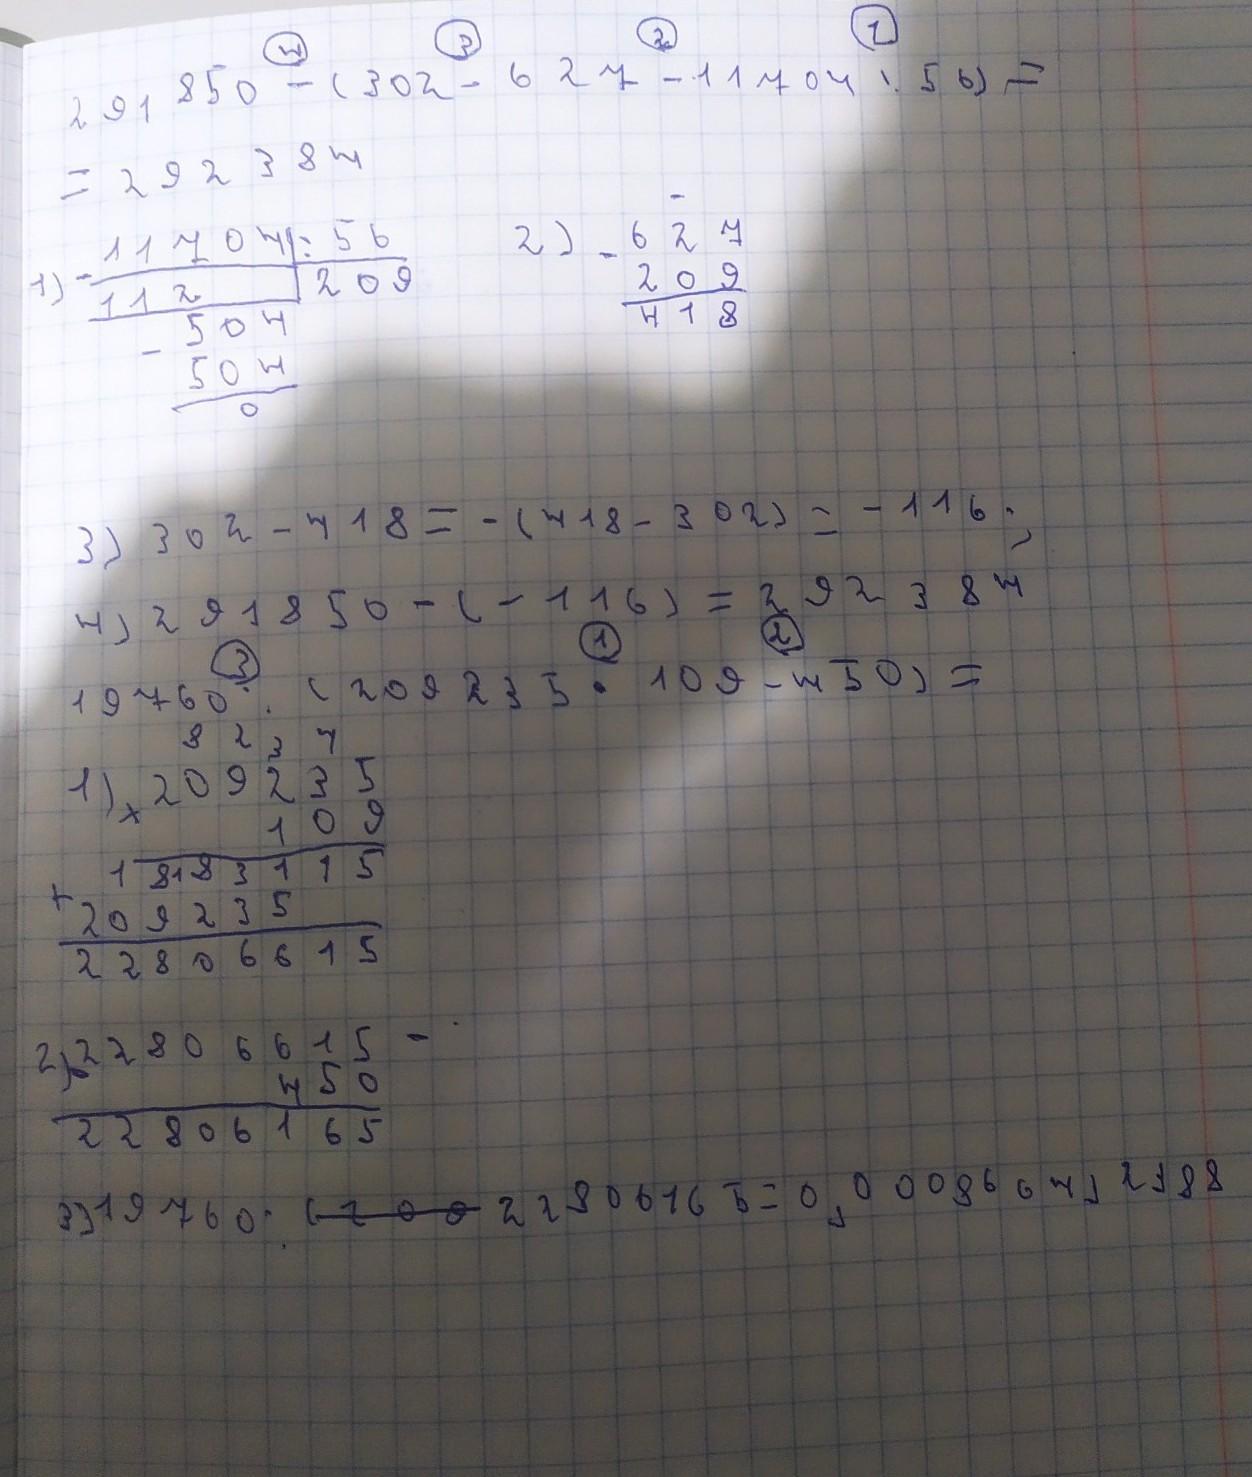 4 3 2 1
291 850 - (302 - 627 - 11704 : 56) =
= 292384
1) - 11704 : 56
112 209
- 504
504
0
2) - 627
209
418
3) 302 - 418 = -(418 - 302) = -116;
4) 291850 - (-116) = 292384
3 1 2
19760 : (209235 • 109 - 450) =
8 2 3 4
1) x 209235
109
+ 1883115
209235
22806615
2) 22806615 -
450
22806165
3) 19760 : (200 22806165 = 0,